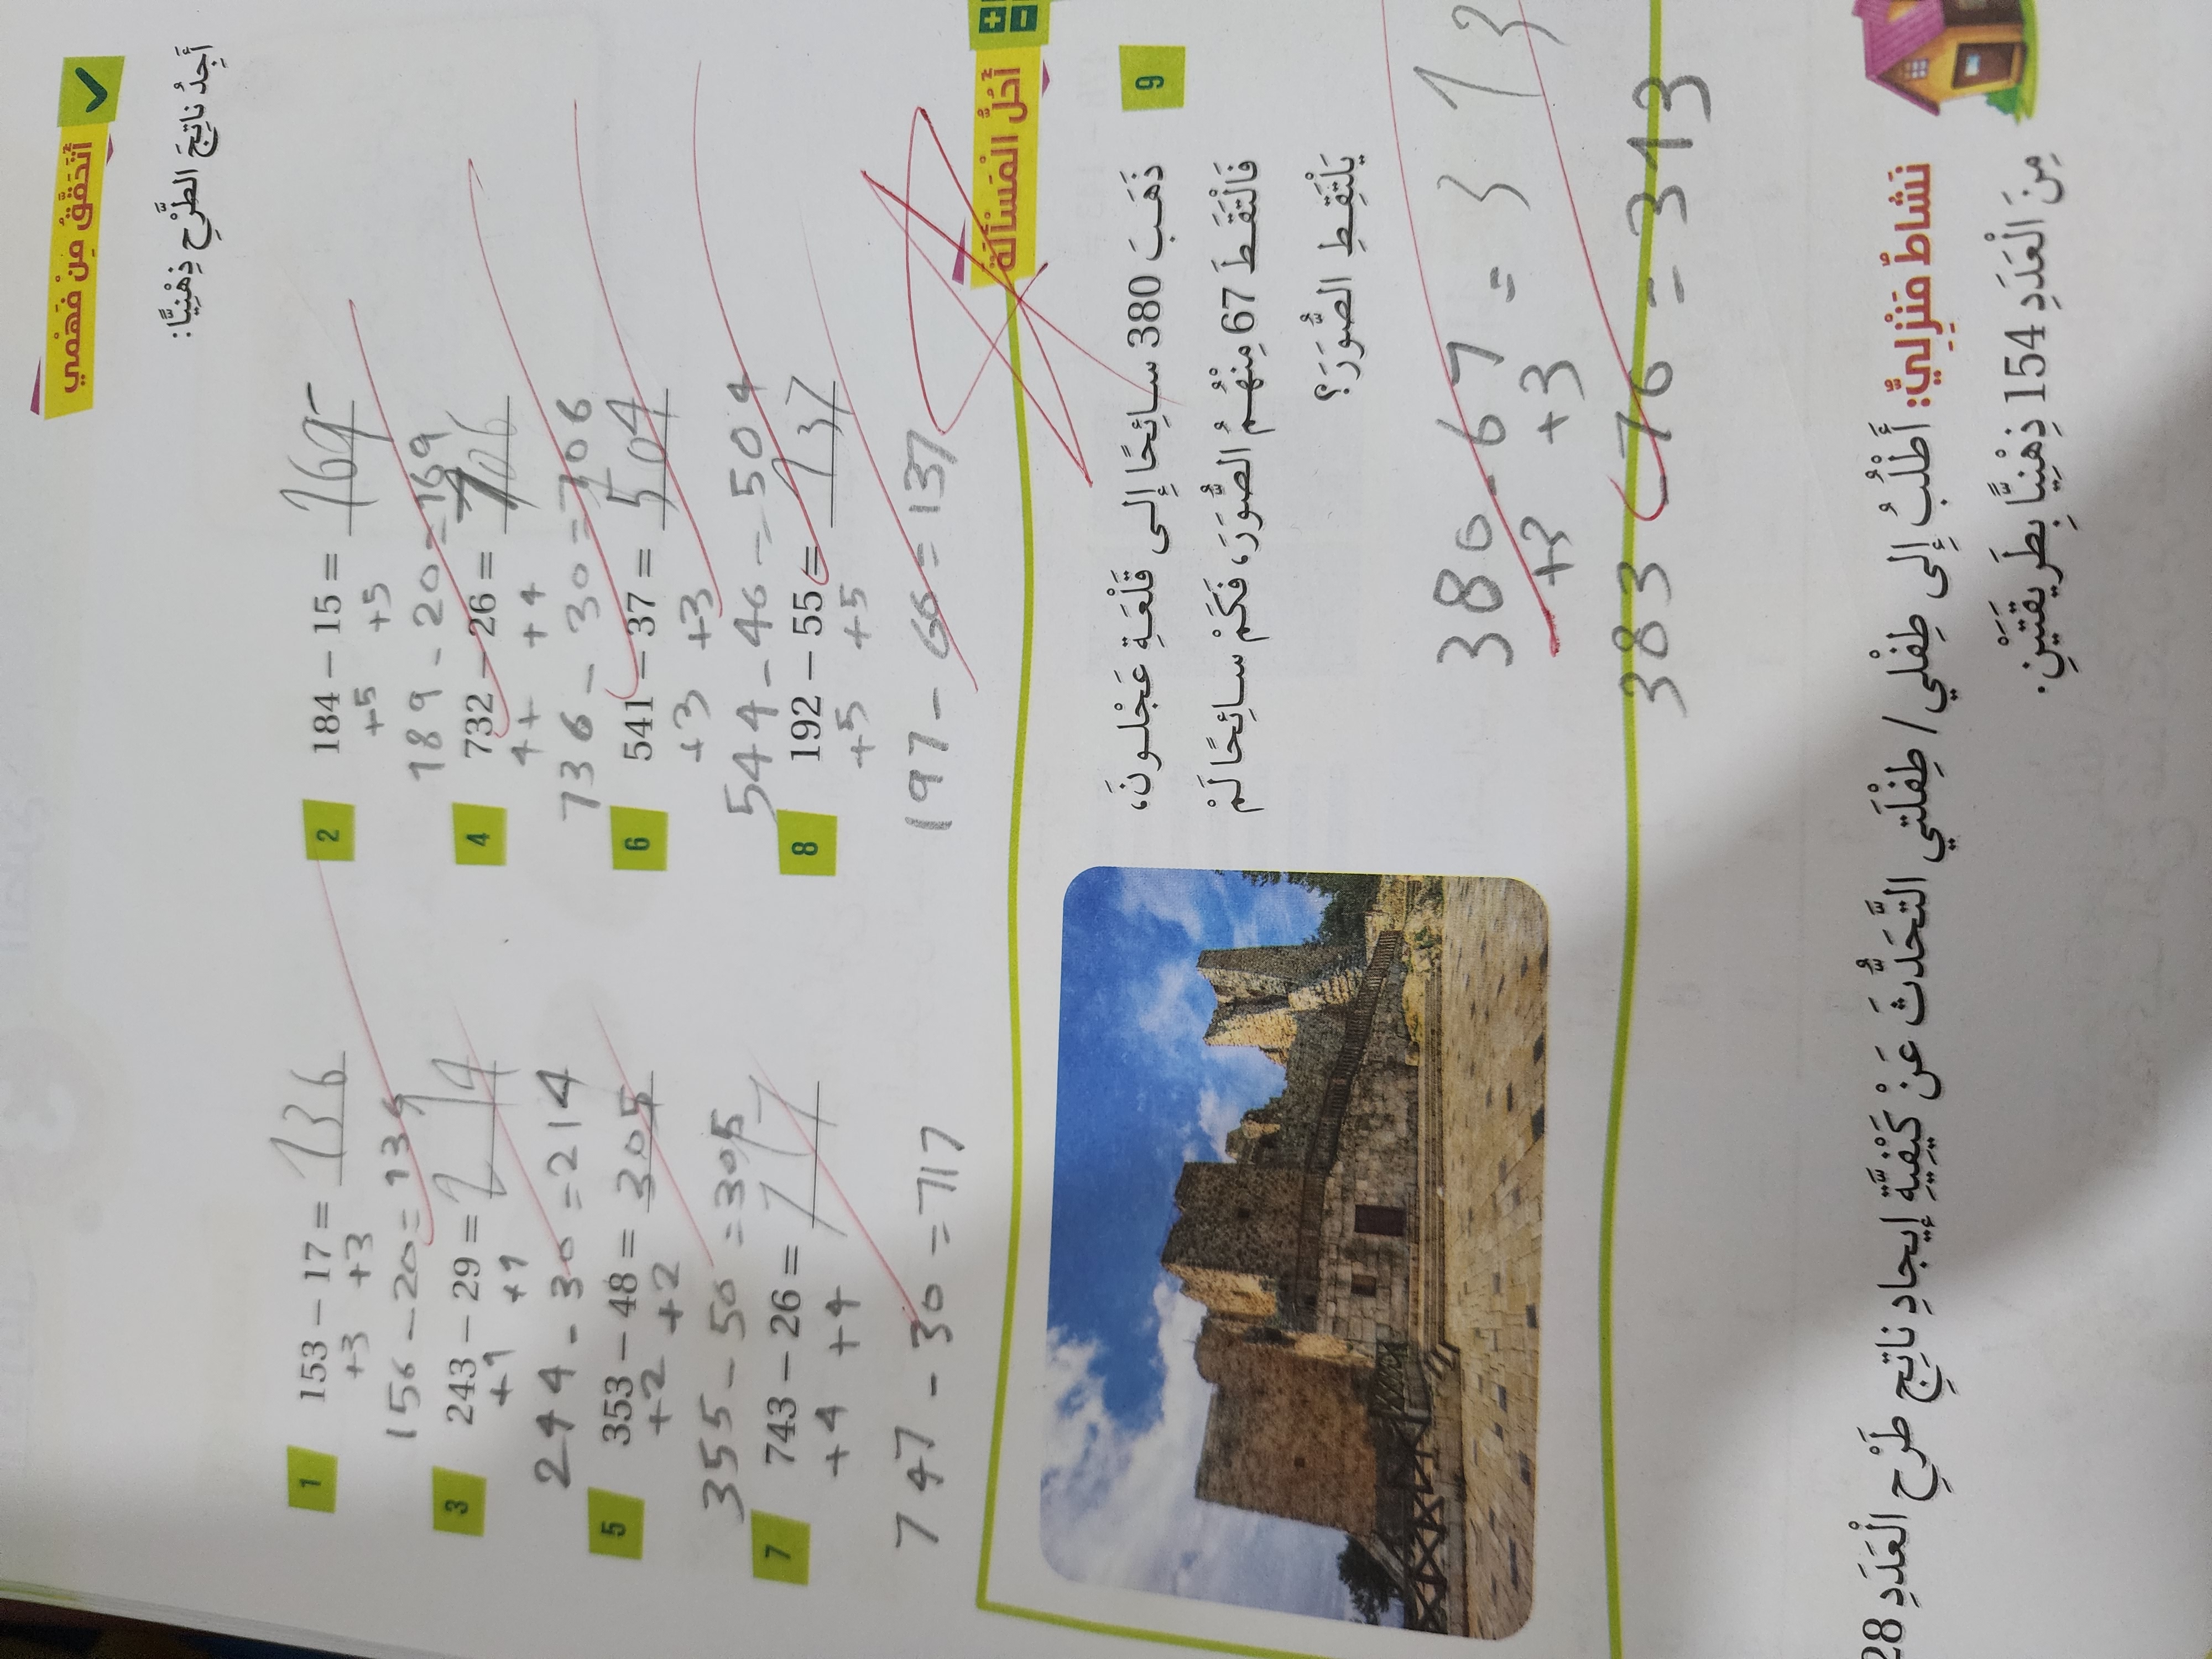 أَتَحَقَّقُ مِنْ فَهْمي
أَجِدُ ناتِجَ الطَّرْحِ ذِهْنِيًّا:
1 153 – 17 = 136
+3 +3
156 - 20 = 136
2 184 – 15 = 169
+5 +5
189 - 20 = 169
3 243 – 29 = 214
+1 +1
244 - 30 = 214
4 732 – 26 = 706
4+ +4
736 - 30 = 706
5 353 – 48 = 305
+2 +2
355 - 50 = 305
6 541 – 37 = 504
+3 +3
544 - 40 = 504
7 743 – 26 = 717
+4 +4
747 - 30 = 717
8 192 – 55 = 137
+5 +5
197 - 60 = 137
أَحُلُّ الْمَسْأَلَةَ
9 ذَهَبَ 380 سائِحًا إِلى قَلْعَةِ عَجْلونَ،
فَالْتَقَطَ 67 مِنْهُمُ الصُّوَرَ، فَكَمْ سائِحًا لَمْ
يَلْتَقِطِ الصُّوَرَ؟
380 - 67 = 313
+3 +3
383 - 76 = 313
نَشاطٌ مَنْزِلِيٌّ: أَطْلُبُ إِلى طِفْلي / طِفْلَتي التَّحَدُّثَ عَنْ كَيْفِيَّةِ إيجادِ ناتِجِ طَرْحِ الْعَدَدِ 28
مِنَ الْعَدَدِ 154 ذِهْنِيًّا بِطَريقَتَيْنِ.